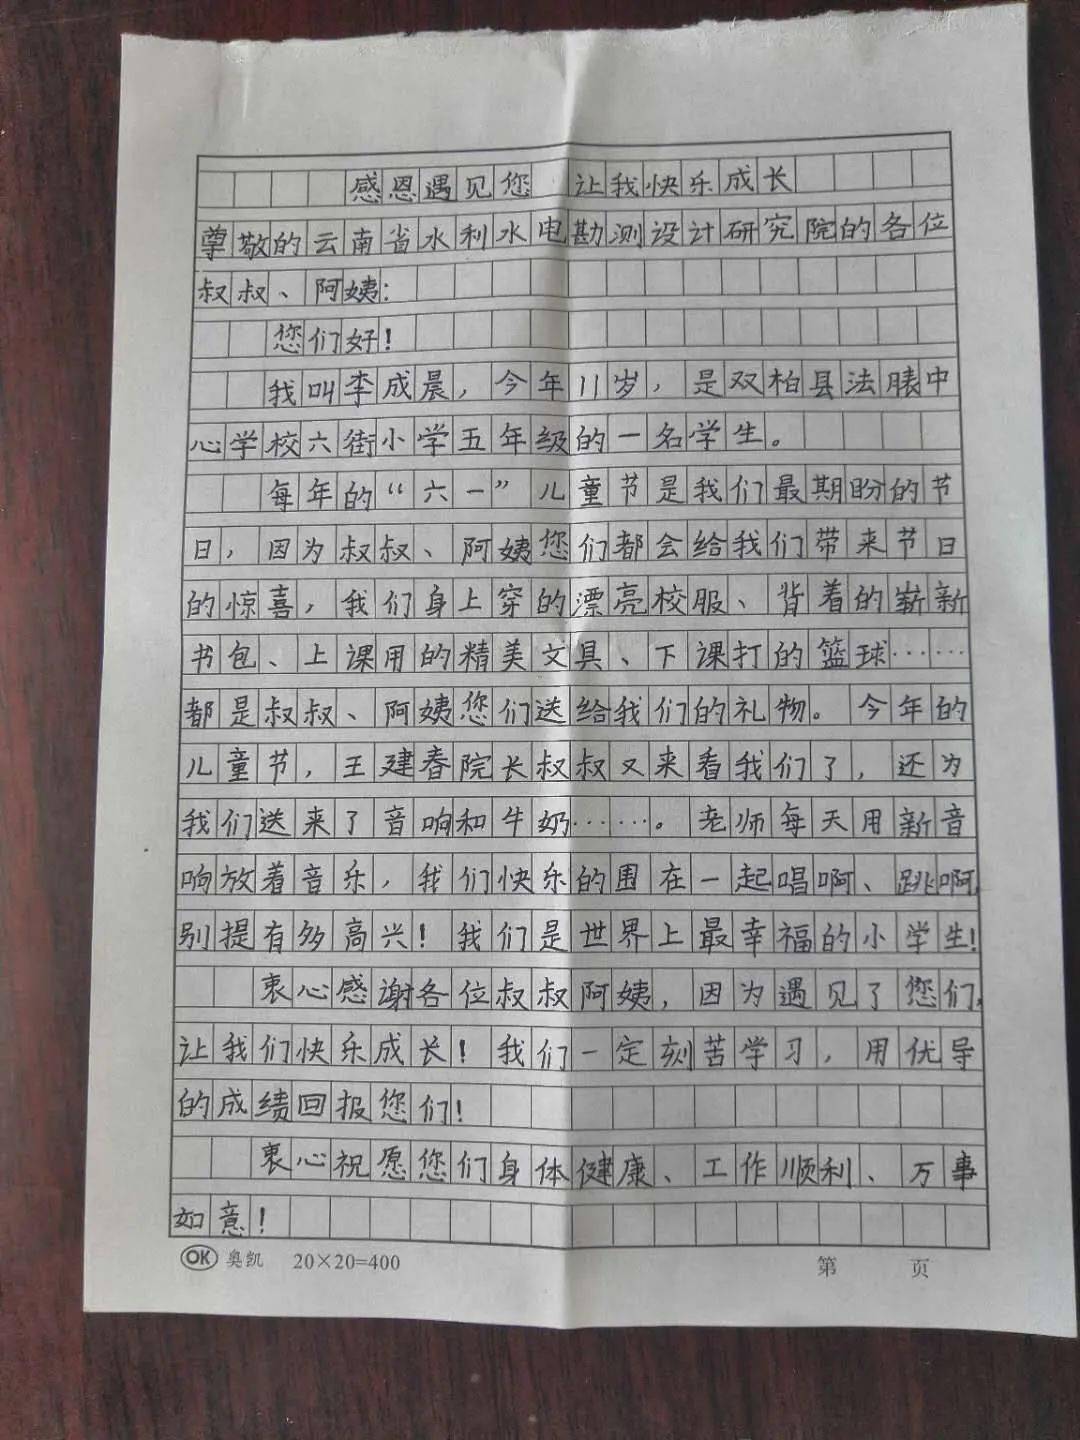 感恩遇见您 让我快乐成长
尊敬的云南省水利水电勘测设计研究院的各位
叔叔、阿姨:
您们好!
我叫李成晨,今年11岁,是双柏县法脿中
心学校六街小学五年级的一名学生。
每年的“六一”儿童节是我们最期盼的节
日,因为叔叔、阿姨您们都会给我们带来节日
的惊喜,我们身上穿的漂亮校服、背着的崭新
书包、上课用的精美文具、下课打的篮球……
都是叔叔、阿姨您们送给我们的礼物。今年的
儿童节,王建春院长叔叔又来看我们了,还为
我们送来了音响和牛奶……。老师每天用新音
响放着音乐,我们快乐的围在一起唱啊、跳啊,
别提有多高兴!我们是世界上最幸福的小学生!
衷心感谢各位叔叔阿姨,因为遇见了您们,
让我们快乐成长!我们一定刻苦学习,用优导
的成绩回报您们!
衷心祝愿您们身体健康、工作顺利、万事
如意!
OK 奥凯 20×20=400 第 页